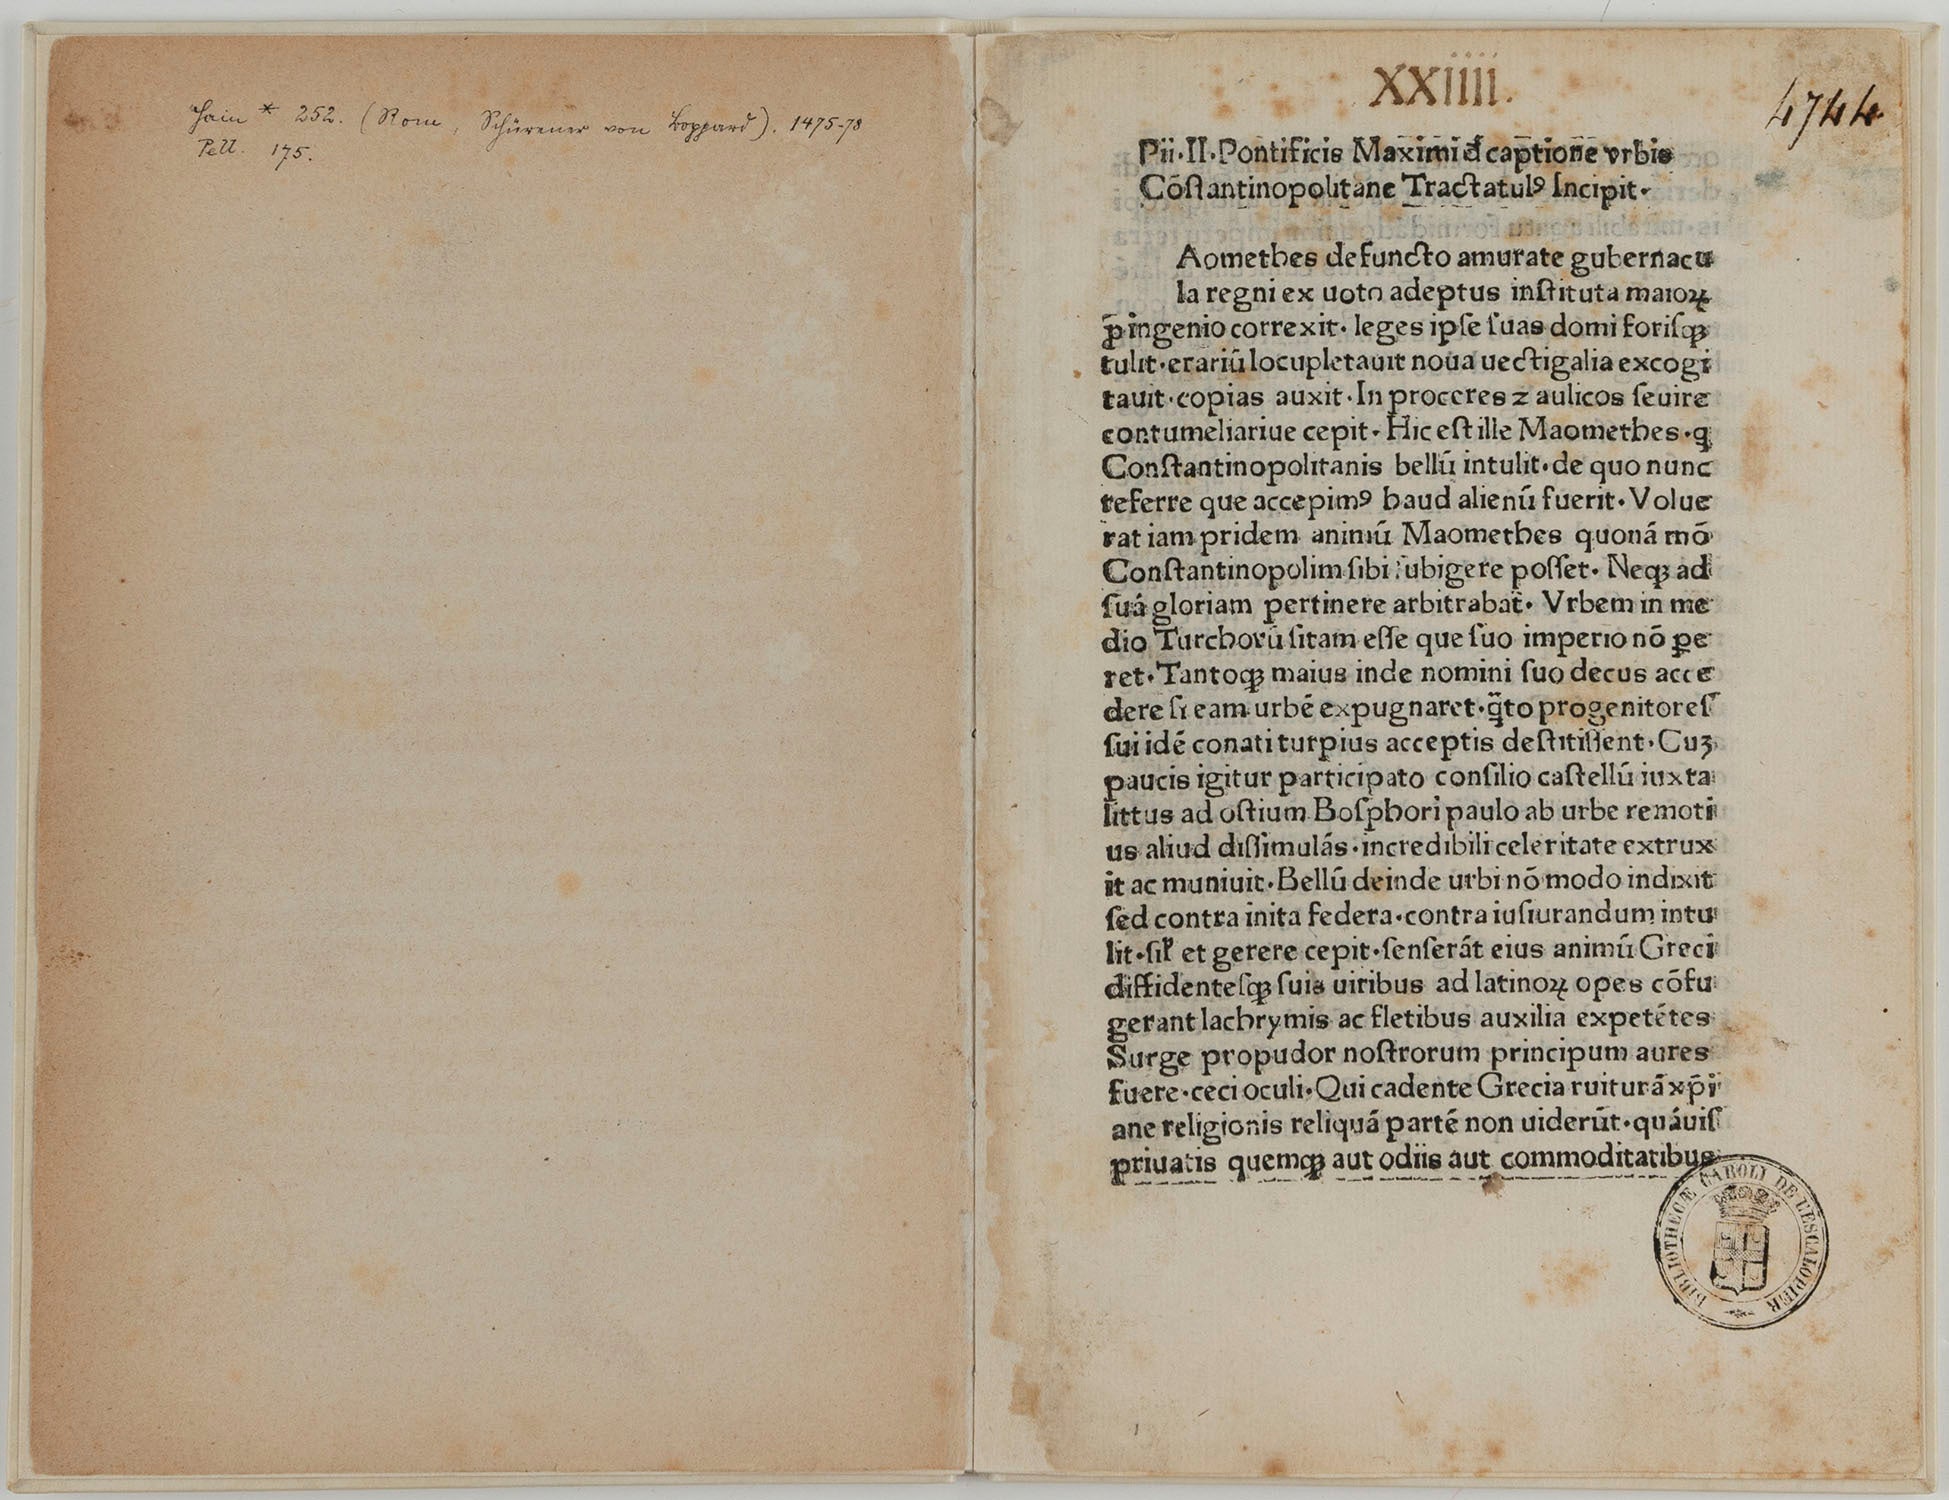 Hain * 252. (Rom, Schürener von Boppard). 1475-78
Pell. 175.
XXIIII.
4744
Pii·II·Pontificis Maximi đ captione vrbis
Cōſtantinopolitane Tractatulꝰ Incipit·
Aomethes defuncto amurate gubernacu
la regni ex uoto adeptus inſtituta maioꝝ
ꝓ ingenio correxit· leges ipſe ſuas domi foriſqꝫ
tulit·erariū locupletauit noua uectigalia excogi
tauit·copias auxit·In proceres ⁊ aulicos ſeuire
contumeliariue cepit· Hic eſt ille Maomethes·q
Conſtantinopolitanis bellū intulit·de quo nunc
referre que accepimꝰ haud alienū fuerit·Volue
rat iam pridem animū Maomethes quonā mō
Conſtantinopolim ſibi ſubigere poſſet· Neqꝫ ad
ſuā gloriam pertinere arbitrabat̄· Vrbem in me
dio Turchorū ſitam eſſe que ſuo imperio nō ꝑe
ret·Tantoqꝫ maius inde nomini ſuo decus acce
dere ſi eam urbē expugnaret·q̄to progenitoreſ
ſui idē conati turpius acceptis deſtitiſſent·Cuꝫ
paucis igitur participato conſilio caſtellū iuxta
littus ad oſtium Boſphori paulo ab urbe remoti
us aliud diſſimulās·incredibili celeritate extrux
it ac muniuit·Bellū deinde urbi nō modo indixit
ſed contra inita federa·contra iuſiurandum intu
lit·ſil' et gerere cepit·ſenſerāt eius animū Greci
diffidenteſqꝫ ſuis uiribus ad latinoꝝ opes cōfu
gerant lachrymis ac fletibus auxilia expetētes
Surge propudor noſtrorum principum aures
fuere·ceci oculi·Qui cadente Grecia ruiturā xp̄i
ane religionis reliquā partē non uiderūt·quāuiſ
priuatis quemqꝫ aut odiis aut commoditatibus
BIBLIOTHECÆ CAROLI DE L'ESCALOPIER